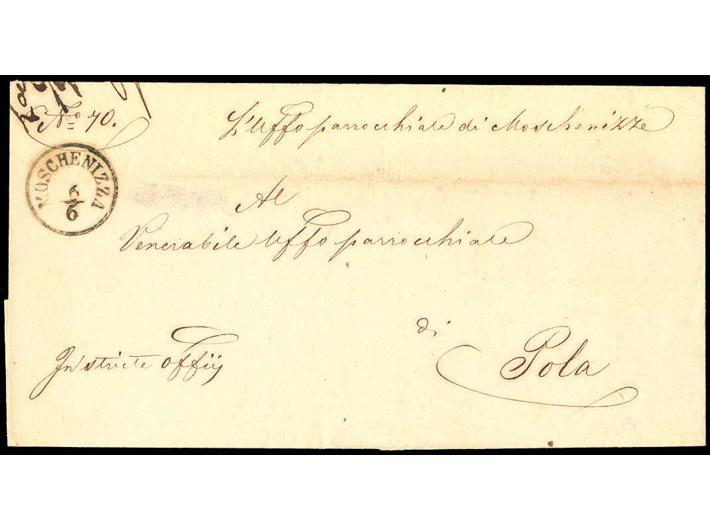 No 70.
L'Uffo parrocchiale di Moschenizze
MOSCHENIZZA
6/6
Al
Venerabile Uffo parrocchiale
di
In stricte offiij
Pola